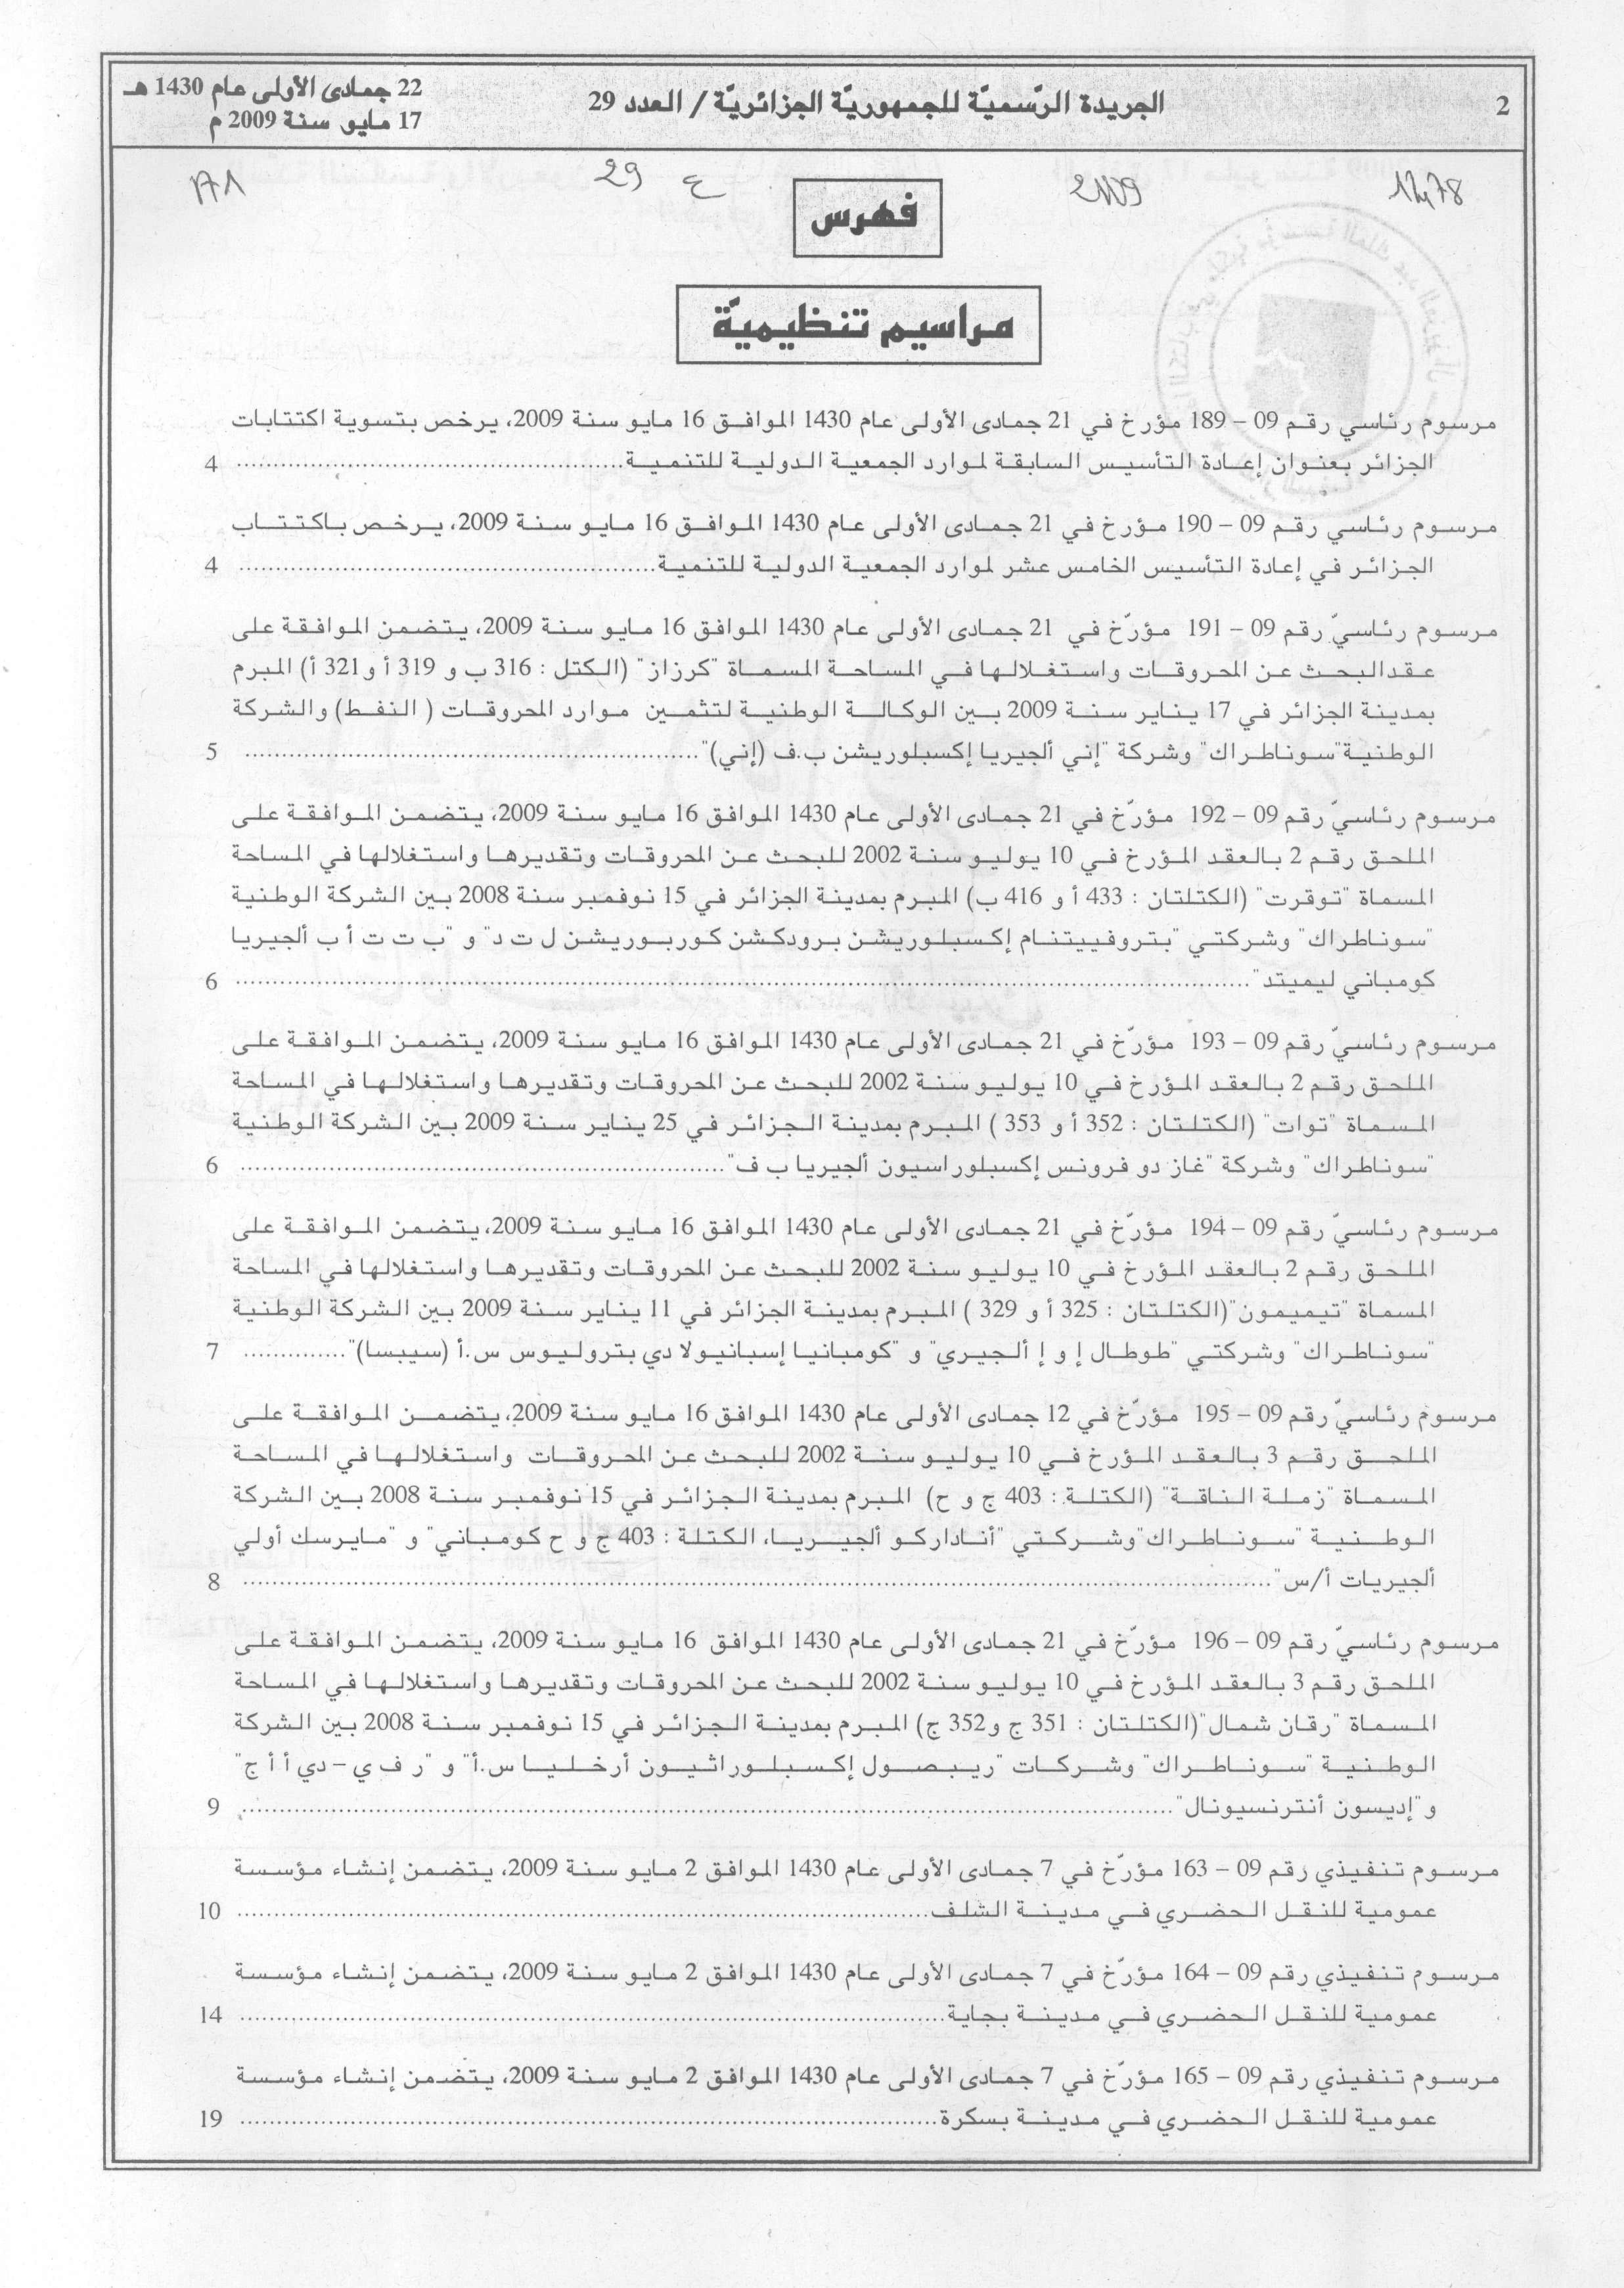 2
الجريدة الرّسميّة للجمهوريّة الجزائريّة / العدد 29
22 جمادى الأولى عام 1430 هـ
17 مايو سنة 2009 م
2009
ع 29
فهرس
مراسيم تنظيميّة
مرسوم رئاسي رقم 09 – 189 مؤرخ في 21 جمادى الأولى عام 1430 الموافق 16 مايو سنة 2009، يرخص بتسوية اكتتابات
الجزائر بعنوان إعادة التأسيس السابقة لموارد الجمعية الدولية للتنمية.................... 4
مرسوم رئاسي رقم 09 – 190 مؤرخ في 21 جمادى الأولى عام 1430 الموافق 16 مايو سنة 2009، يرخص باكتتاب
الجزائر في إعادة التأسيس الخامس عشر لموارد الجمعية الدولية للتنمية.................... 4
مرسوم رئاسيّ رقم 09 – 191 مؤرّخ في 21 جمادى الأولى عام 1430 الموافق 16 مايو سنة 2009، يتضمن الموافقة على
عقد البحث عن المحروقات واستغلالها في المساحة المسماة "كرزاز" (الكتل : 316 ب و 319 أ و 321 أ) المبرم
بمدينة الجزائر في 17 يناير سنة 2009 بين الوكالة الوطنية لتثمين موارد المحروقات ( النفط) والشركة
الوطنية "سوناطراك" وشركة "إني ألجيريا إكسبلوريشن ب.ف (إني)".................... 5
مرسوم رئاسيّ رقم 09 – 192 مؤرّخ في 21 جمادى الأولى عام 1430 الموافق 16 مايو سنة 2009، يتضمن الموافقة على
الملحق رقم 2 بالعقد المؤرخ في 10 يوليو سنة 2002 للبحث عن المحروقات وتقديرها واستغلالها في المساحة
المسماة "توقرت" (الكتلتان : 433 أ و 416 ب) المبرم بمدينة الجزائر في 15 نوفمبر سنة 2008 بين الشركة الوطنية
"سوناطراك" وشركتي "بتروفييتنام إكسبلوريشن برودكشن كوربوريشن ل ت د" و "ب ت ت أ ب ألجيريا
كومباني ليميتد".................... 6
مرسوم رئاسيّ رقم 09 – 193 مؤرّخ في 21 جمادى الأولى عام 1430 الموافق 16 مايو سنة 2009، يتضمن الموافقة على
الملحق رقم 2 بالعقد المؤرخ في 10 يوليو سنة 2002 للبحث عن المحروقات وتقديرها واستغلالها في المساحة
المسماة "توات" (الكتلتان : 352 أ و 353 ) المبرم بمدينة الجزائر في 25 يناير سنة 2009 بين الشركة الوطنية
"سوناطراك" وشركة "غاز دو فرونس إكسبلوراسيون ألجيريا ب ف".................... 6
مرسوم رئاسيّ رقم 09 – 194 مؤرّخ في 21 جمادى الأولى عام 1430 الموافق 16 مايو سنة 2009، يتضمن الموافقة على
الملحق رقم 2 بالعقد المؤرخ في 10 يوليو سنة 2002 للبحث عن المحروقات وتقديرها واستغلالها في المساحة
المسماة "تيميمون" (الكتلتان : 325 أ و 329 ) المبرم بمدينة الجزائر في 11 يناير سنة 2009 بين الشركة الوطنية
"سوناطراك" وشركتي "طوطال إ و إ ألجيري" و "كومبانيا إسبانيولا دي بتروليوس س.أ (سيبسا)".............. 7
مرسوم رئاسيّ رقم 09 – 195 مؤرّخ في 12 جمادى الأولى عام 1430 الموافق 16 مايو سنة 2009، يتضمن الموافقة على
الملحق رقم 3 بالعقد المؤرخ في 10 يوليو سنة 2002 للبحث عن المحروقات واستغلالها في المساحة
المسماة "زملة الناقة" (الكتلة : 403 ج و ح) المبرم بمدينة الجزائر في 15 نوفمبر سنة 2008 بين الشركة
الوطنية "سوناطراك" وشركتي "أناداركو ألجيريا، الكتلة : 403 ج و ح كومباني" و "مايرسك أولي
ألجيريات أ/س".................... 8
مرسوم رئاسيّ رقم 09 – 196 مؤرّخ في 21 جمادى الأولى عام 1430 الموافق 16 مايو سنة 2009، يتضمن الموافقة على
الملحق رقم 3 بالعقد المؤرخ في 10 يوليو سنة 2002 للبحث عن المحروقات وتقديرها واستغلالها في المساحة
المسماة "رقان شمال" (الكتلتان : 351 ج و 352 ج) المبرم بمدينة الجزائر في 15 نوفمبر سنة 2008 بين الشركة
الوطنية "سوناطراك" وشركات "ريبصول إكسبلوراثيون أرخليا س.أ" و "ر ف ي – دي أ أ ج"
و "إديسون أنترنسيونال".................... 9
مرسوم تنفيذي رقم 09 – 163 مؤرّخ في 7 جمادى الأولى عام 1430 الموافق 2 مايو سنة 2009، يتضمن إنشاء مؤسسة
عمومية للنقل الحضري في مدينة الشلف.................... 10
مرسوم تنفيذي رقم 09 – 164 مؤرّخ في 7 جمادى الأولى عام 1430 الموافق 2 مايو سنة 2009، يتضمن إنشاء مؤسسة
عمومية للنقل الحضري في مدينة بجاية.................... 14
مرسوم تنفيذي رقم 09 – 165 مؤرّخ في 7 جمادى الأولى عام 1430 الموافق 2 مايو سنة 2009، يتضمن إنشاء مؤسسة
عمومية للنقل الحضري في مدينة بسكرة.................... 19